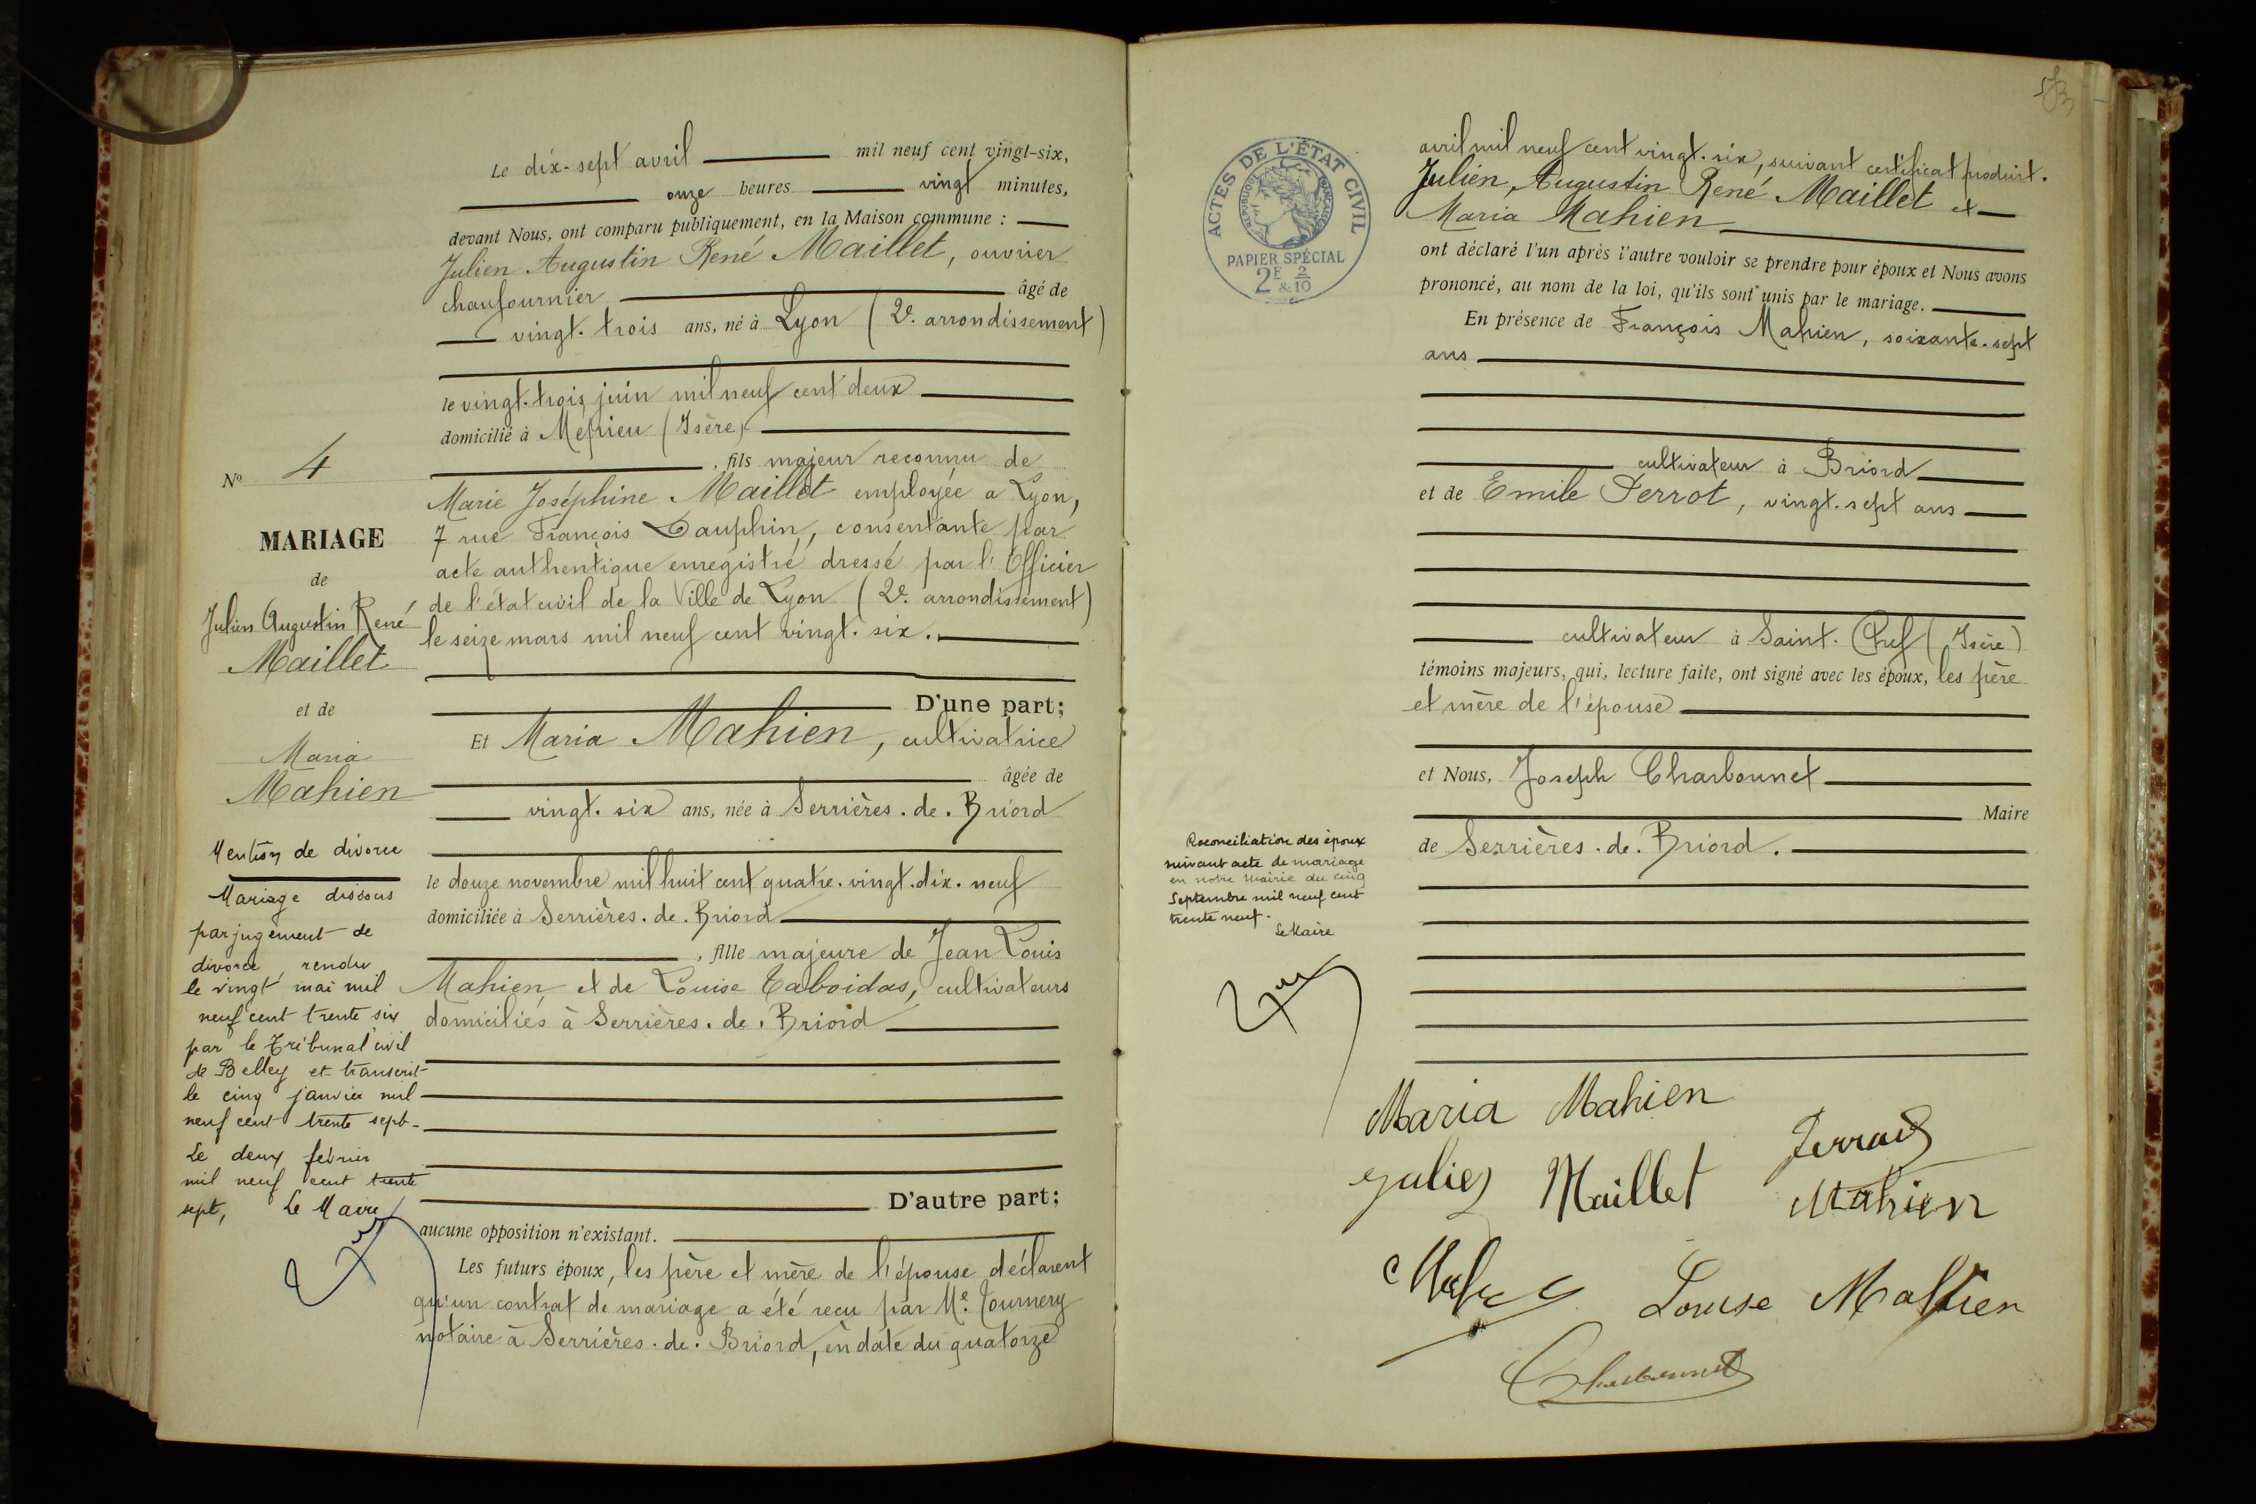 Le dix-sept avril mil neuf cent vingt-six,
onze heures vingt minutes,
devant Nous, ont comparu publiquement, en la Maison commune :
Julien Augustin René Maillet, ouvrier
chaufournier âgé de
vingt-trois ans, né à Lyon (2e. arrondissement)
le vingt-trois juin mil neuf cent deux
domicilié à Mépieu (Isère)
, fils majeur reconnu de
Marie Joséphine Maillet employée a Lyon,
7 rue François Dauphin, consentante par
acte authentique enregistré dressé par l'Officier
de l'état civil de la Ville de Lyon (2e. arrondissement)
le seize mars mil neuf cent vingt-six.
D'une part;
Et Maria Mahien, cultivatrice
âgée de
vingt-six ans, née à Serrières-de-Briord
le douze novembre mil huit cent quatre-vingt-dix-neuf
domiciliée à Serrières-de-Briord
, fille majeure de Jean Louis
Mahien et de Louise Taboidas, cultivateurs
domiciliés à Serrières-de-Briord
D'autre part;
aucune opposition n'existant.
Les futurs époux, les père et mère de l'épouse déclarent
qu'un contrat de mariage a été recu par Me. Tournery
notaire à Serrières-de-Briord, en date du quatorze
No 4
MARIAGE
de
Julien Augustin René
Maillet
et de
Maria
Mahien
Mention de divorce
Mariage dissous
par jugement de
divorce rendu
le vingt mai mil
neuf cent trente six
par le Tribunal civil
de Belley et transcrit
le cinq janvier mil
neuf cent trente sept-
Le deux février
mil neuf cent trente
sept, Le Maire
ACTES DE L'ÉTAT CIVIL
RÉPUBLIQUE FRANÇAISE
PAPIER SPÉCIAL
2F & 2/10
avril mil neuf cent vingt-six, suivant certificat produit.
Julien Augustin René Maillet et
Maria Mahien
ont déclaré l'un après l'autre vouloir se prendre pour époux et Nous avons
prononcé, au nom de la loi, qu'ils sont unis par le mariage.
En présence de François Mahien, soixante-sept
ans
cultivateur à Briord
et de Emile Perrot, vingt-sept ans
cultivateur à Saint-Chef (Isère)
témoins majeurs, qui, lecture faite, ont signé avec les époux, les père
et mère de l'épouse
et Nous, Joseph Charbonnet
Maire
de Serrières-de-Briord.
Reconciliation des époux
suivant acte de mariage
en notre Mairie du cinq
Septembre mil neuf cent
trente neuf.
Le Maire
Maria Mahien
Julien Maillet
Mahien
Louise Mahien
Charbonnet